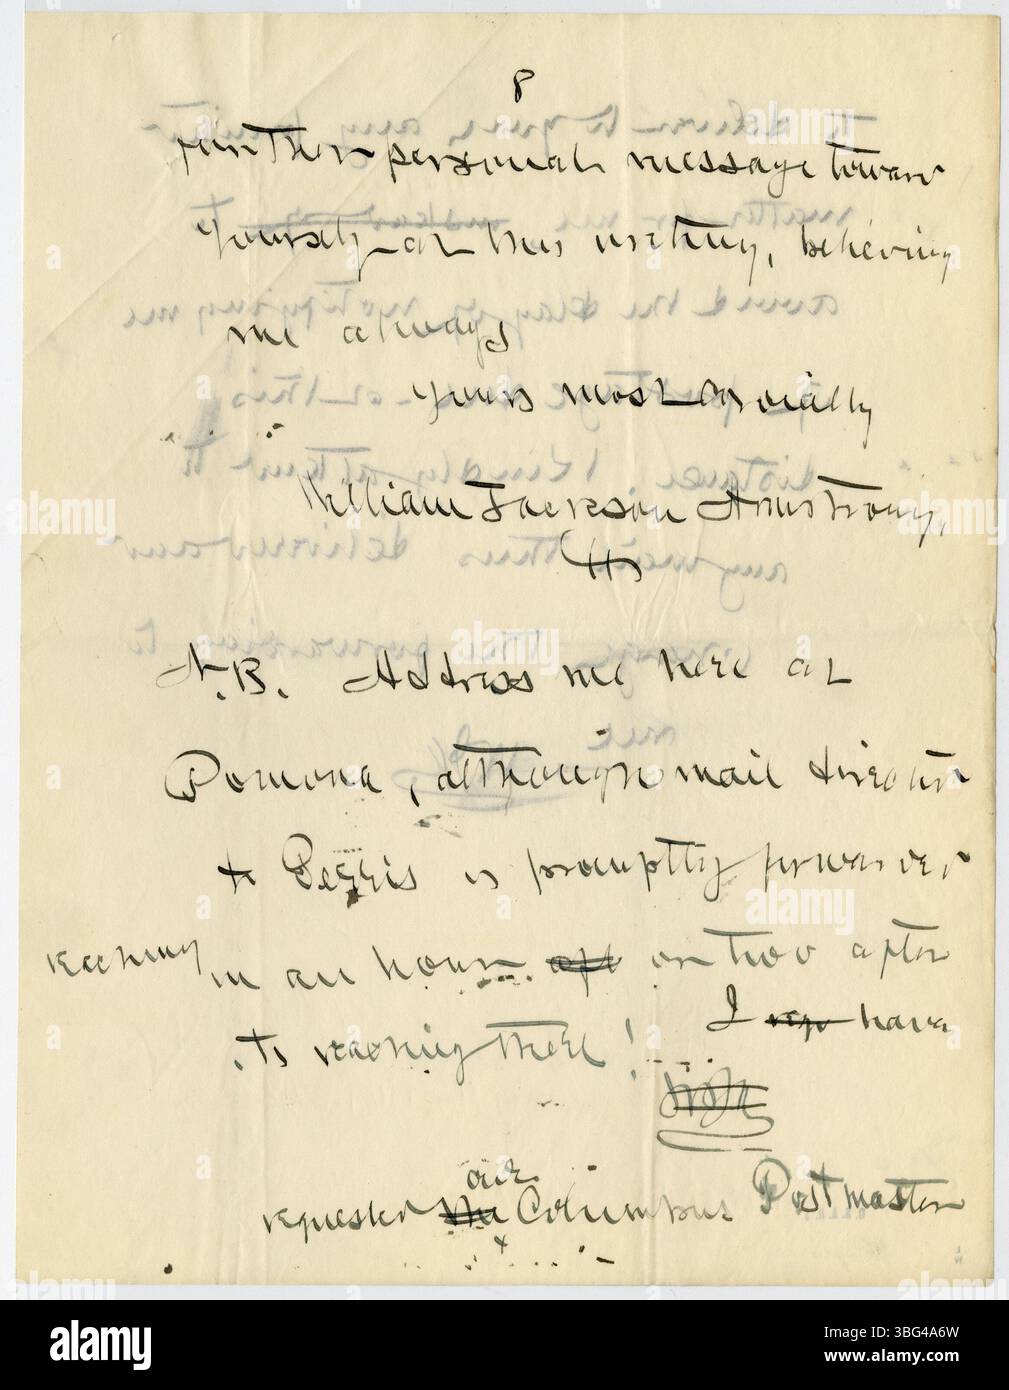 8
further personal message toward
yourself at this writing, believing
me always
Yours most cordially
William Jackson Armstrong.
N.B. Address me here at
Pomona, although mail directed
to Perris is promptly forwarded
reaching in an hour or two after
its reaching there! I have
requested our Columbus Postmaster
alamy
Image ID: 3BG4A6W
www.alamy.com